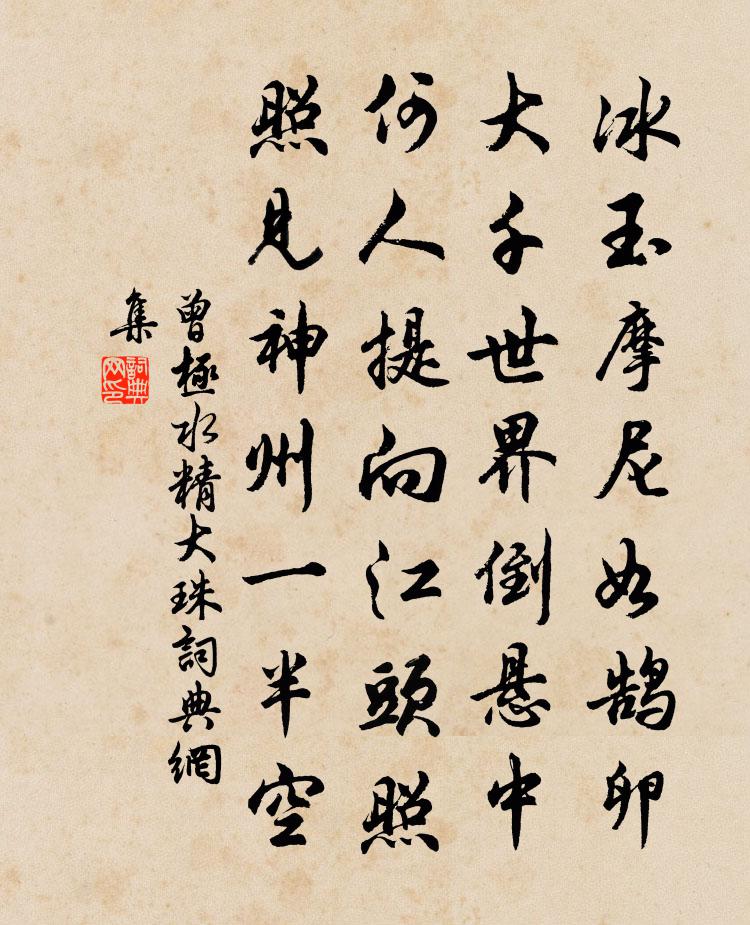 冰玉摩尼如鹄卵
大千世界倒悬中
何人提向江頭照
照見神州一半空
曾極水精大珠詞典網
集
詞典
网印